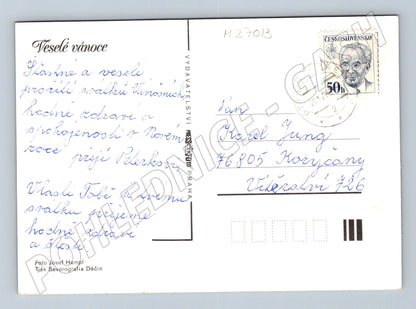 M 27013
Veselé vánoce
Šťastné a veselé
prožití svátků Vánočních
hodně zdraví a
spokojenosti v Novém
roce přejí Peterkovi
Vlasti Tobě k
svátku přejeme
hodně zdraví
a štěstí
Foto Josef Hampl
Tisk Severografia Děčín
VYDAVATELSTVÍ
PRAHA
ČESKOSLOVENSKO
50h
Pan
Karel Jung
76805 Koryčany
Vítězství 726
POHLEDNICE - GASH